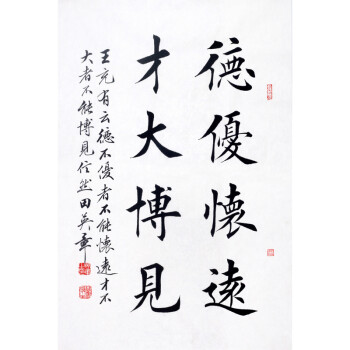 德優懷遠
才大博見
王充有云德不優者不能懷遠才不
大者不能博見信然田英章